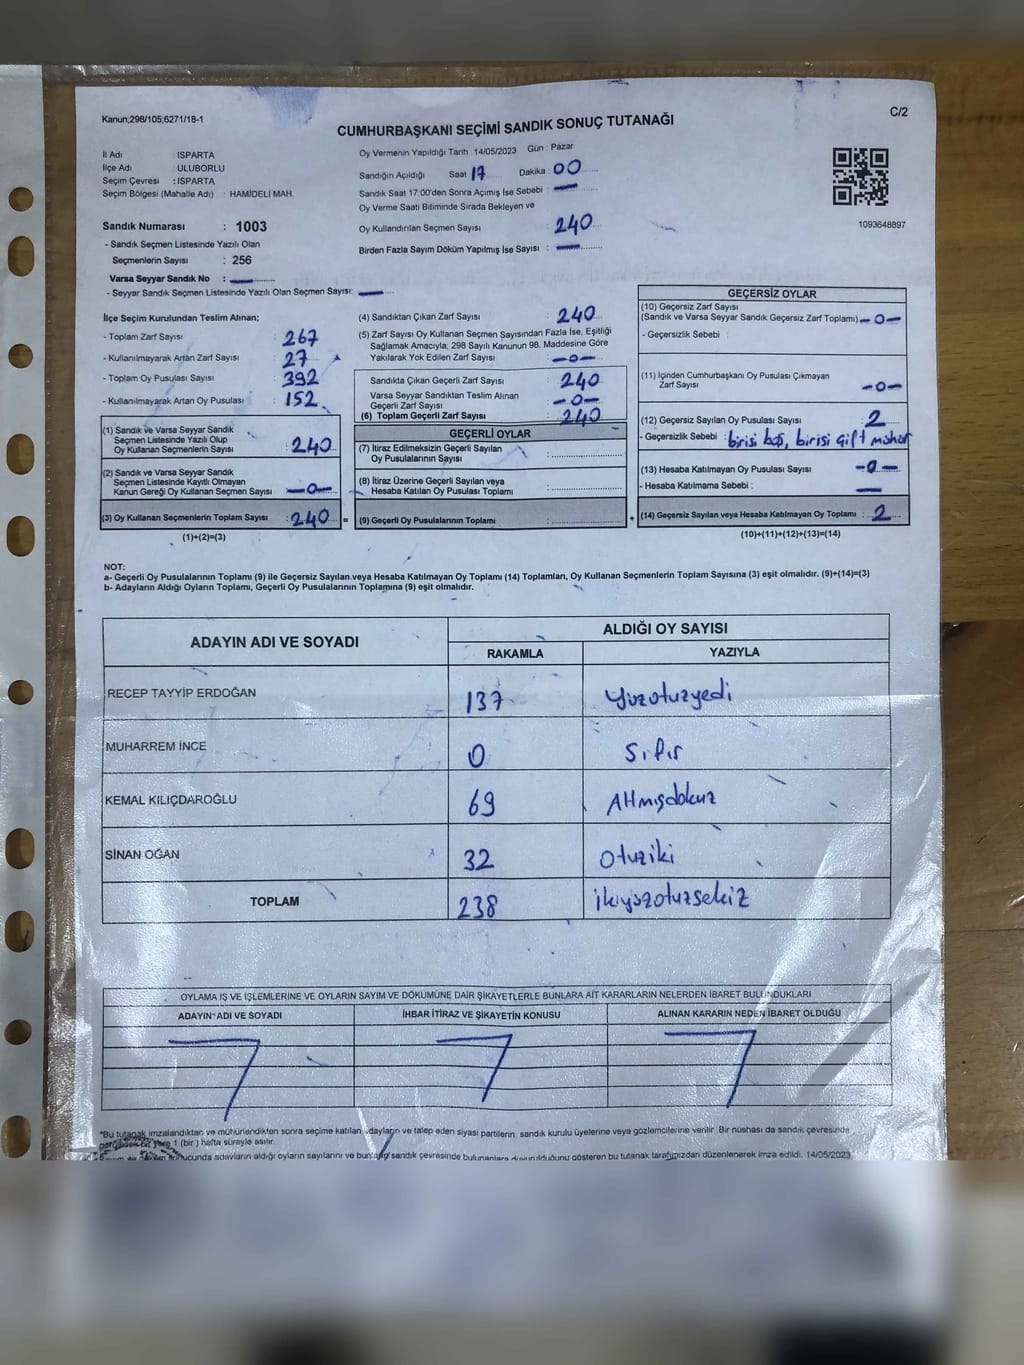 Kanun;298/105;6271/18-1
C/2
CUMHURBAŞKANI SEÇİMİ SANDIK SONUÇ TUTANAĞI
İl Adı ISPARTA
İlçe Adı ULUBORLU
Seçim Çevresi : ISPARTA
Seçim Bölgesi (Mahalle Adı) : HAMİDELİ MAH.
Sandık Numarası : 1003
- Sandık Seçmen Listesinde Yazılı Olan
Seçmenlerin Sayısı : 256
Varsa Seyyar Sandık No : —
- Seyyar Sandık Seçmen Listesinde Yazılı Olan Seçmen Sayısı: —
Oy Vermenin Yapıldığı Tarih : 14/05/2023 Gün : Pazar
Sandığın Açıldığı Saat 17 Dakika 00
Sandık Saat 17:00'den Sonra Açımış İse Sebebi : —
Oy Verme Saati Bitiminde Sırada Bekleyen ve
Oy Kullandırılan Seçmen Sayısı 240
Birden Fazla Sayım Döküm Yapılmış İse Sayısı : —
1093648897
İlçe Seçim Kurulundan Teslim Alınan;
- Toplam Zarf Sayısı : 267
- Kullanılmayarak Artan Zarf Sayısı : 27
- Toplam Oy Pusulası Sayısı : 392
- Kullanılmayarak Artan Oy Pusulası : 152
(1) Sandık ve Varsa Seyyar Sandık
Seçmen Listesinde Yazılı Olup
Oy Kullanan Seçmenlerin Sayısı : 240
(2) Sandık ve Varsa Seyyar Sandık
Seçmen Listesinde Kayıtlı Olmayan
Kanun Gereği Oy Kullanan Seçmen Sayısı —0—
(3) Oy Kullanan Seçmenlerin Toplam Sayısı : 240 =
(1)+(2)=(3)
(4) Sandıktan Çıkan Zarf Sayısı : 240
(5) Zarf Sayısı Oy Kullanan Seçmen Sayısından Fazla İse, Eşitliği
Sağlamak Amacıyla; 298 Sayılı Kanunun 98. Maddesine Göre
Yakılarak Yok Edilen Zarf Sayısı : —0—
Sandıkta Çıkan Geçerli Zarf Sayısı : 240
Varsa Seyyar Sandıktan Teslim Alınan
Geçerli Zarf Sayısı : —0—
(6) Toplam Geçerli Zarf Sayısı : 240
GEÇERLİ OYLAR
(7) İtiraz Edilmeksizin Geçerli Sayılan
Oy Pusulalarının Sayısı :
(8) İtiraz Üzerine Geçerli Sayılan veya
Hesaba Katılan Oy Pusulası Toplamı :
(9) Geçerli Oy Pusulalarının Toplamı : +
GEÇERSİZ OYLAR
(10) Geçersiz Zarf Sayısı
(Sandık ve Varsa Seyyar Sandık Geçersiz Zarf Toplamı) —0—
- Geçersizlik Sebebi :
(11) İçinden Cumhurbaşkanı Oy Pusulası Çıkmayan
Zarf Sayısı : —0—
(12) Geçersiz Sayılan Oy Pusulası Sayısı : 2
- Geçersizlik Sebebi : birisi boş, birisi çift mühür
(13) Hesaba Katılmayan Oy Pusulası Sayısı —0—
- Hesaba Katılmama Sebebi : —
(14) Geçersiz Sayılan veya Hesaba Katılmayan Oy Toplamı : 2
(10)+(11)+(12)+(13)=(14)
NOT:
a- Geçerli Oy Pusulalarının Toplamı (9) ile Geçersiz Sayılan veya Hesaba Katılmayan Oy Toplamı (14) Toplamları, Oy Kullanan Seçmenlerin Toplam Sayısına (3) eşit olmalıdır. (9)+(14)=(3)
b- Adayların Aldığı Oyların Toplamı, Geçerli Oy Pusulalarının Toplamına (9) eşit olmalıdır.
ADAYIN ADI VE SOYADI ALDIĞI OY SAYISI
RAKAMLA YAZIYLA
RECEP TAYYİP ERDOĞAN 137 Yüzotuzyedi
MUHARREM İNCE 0 Sıfır
KEMAL KILIÇDAROĞLU 69 Altmışdokuz
SİNAN OĞAN 32 Otuziki
TOPLAM 238 ikiyüzotuzsekiz
OYLAMA İŞ VE İŞLEMLERİNE VE OYLARIN SAYIM VE DÖKÜMÜNE DAİR ŞİKAYETLERLE BUNLARA AİT KARARLARIN NELERDEN İBARET BULUNDUKLARI
ADAYIN ADI VE SOYADI İHBAR İTİRAZ VE ŞİKAYETİN KONUSU ALINAN KARARIN NEDEN İBARET OLDUĞU
*Bu tutanak imzalandıktan ve mühürlendikten sonra seçime katılan adayların ve talep eden siyasi partilerin sandık kurulu üyelerine veya gözlemcilerine verilir. Bir nüshası da sandık çevresinde
yere 1 (bir) hafta süreyle asılır.
sonucunda adayların aldığı oyların sayılarını ve sandık çevresinde gösteren bu tutanak tarafımızdan düzenlenerek imza edildi. 14/05/2023